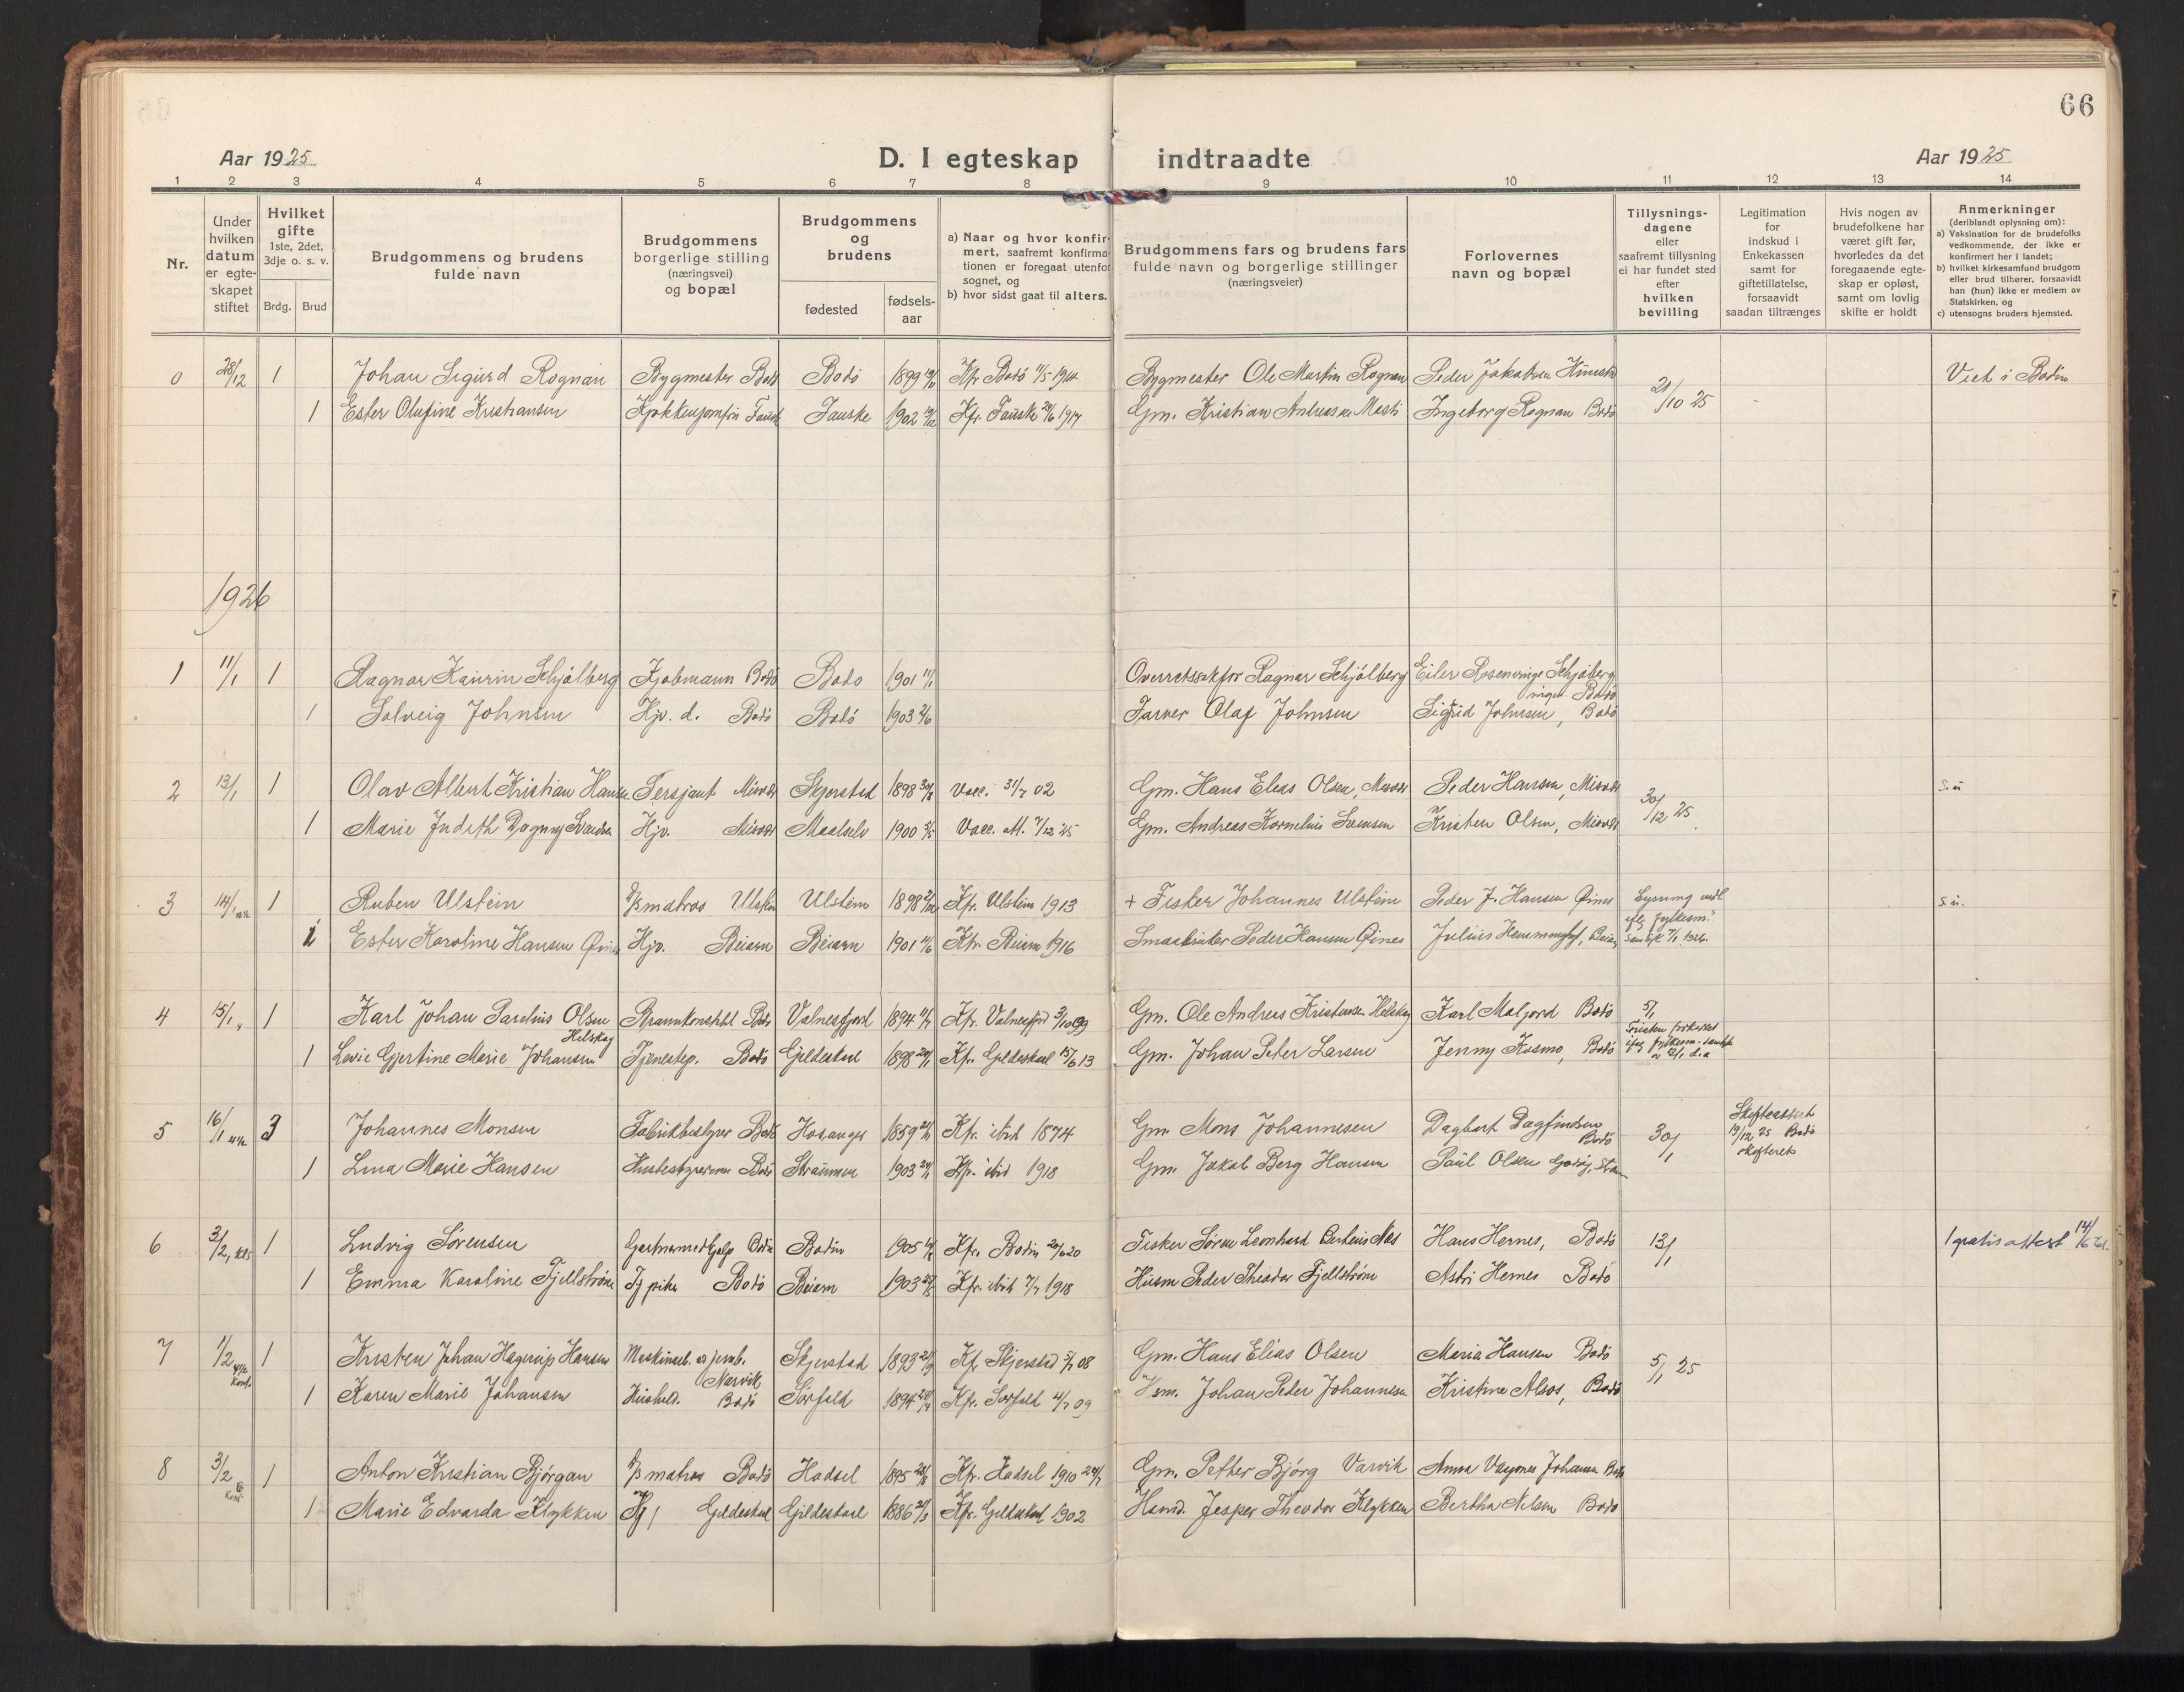 66
Aar 1925
D. I egteskap indtraadte
Aar 1925
1 2 3 4 5 6 7 8 9 10 11 12 13 14
Nr.
Under hvilken datum er egteskapet stiftet
Hvilket gifte
1ste, 2det, 3dje o. s. v.
Brdg. Brud
Brudgommens og brudens fulde navn
Brudgommens borgerlige stilling (næringsvei) og bopæl
Brudgommens og brudens
fødested
fødsels-aar
a) Naar og hvor konfirmert, saafremt konfirmationen er foregaat utenfor sognet, og
b) hvor sidst gaat til alters.
Brudgommens fars og brudens fars fulde navn og borgerlige stillinger (næringsveier)
Forlovernes navn og bopæl
Tillysnings-dagene eller saafremt tillysning ei har fundet sted efter hvilken bevilling
Legitimation for indskud i Enkekassen samt for giftetillatelse, forsaavidt saadan tiltrænges
Hvis nogen av brudefolkene har været gift før, hvorledes da det foregaaende egteskap er opløst, samt om lovlig skifte er holdt
Anmerkninger (deriblandt oplysning om):
a) Vaksination for de brudefolks vedkommende, der ikke er konfirmert her i landet;
b) hvilket kirkesamfund brudgom eller brud tilhører, forsaavidt han (hun) ikke er medlem av Statskirken, og
c) utensogns bruders hjemsted.
0 28/12 1 Johan Sigurd Rognan Bygmester Bodø Bodø 1899 Kfr Bodø 1914 Bygmester Ole Martin Rognan Peder Jakobsen 21/10 25 Viet i Bodin
1 Ester Olufine Kristiansen Kjøkkenjomfru Fauske Fauske 1902 Kfr. Fauske 1917 Gm. Kristian Andreassen Ingeborg Rognan Bodø
1926
1 11/1 1 Ragnar Kaurin Schjølberg Kjøbmann Bodø Bodø 1901 11/1 Overretssakfør Ragnar Schjølberg Eiler Rosenvinge Schjølberg
Bodø
1 Solveig Johnsen Hjv. d. Bodø Bodø 1903 Farver Olaf Johnsen Sigfrid Johnsen, Bodø
2 13/1 1 Olav Albert Kristian Hansen Sersjant Misvær Skjerstad 1898 Vacc. 31/7 02 Gm. Hans Elias Olsen, Misvær Peder Hansen, Misvær 30/12 25
1 Marie Judith Dagny Hjv. Misvær Maalselv 1900 Vacc. att. 7/12 25 Gm. Andreas Kornelius Svensen Kristen Olsen, Misvær
3 14/1 1 Ruben Ulstein matros Ulstein Ulstein 1898 Kfr. Ulstein 1913 + Fisker Johannes Ulstein Peder J. Hansen Øines Lysning
1 Ester Karoline Hansen Øines Hjv. Beiarn Beiarn 1901 Kfr. Beiarn 1916 Peder Hansen Øines Julius
4 15/1 1 Karl Johan Olsen Bodø Valnesfjord 1894 Kfr. Valnesfjd 3/10 09 Gm. Ole Andreas Kristensen Karl Maljord Bodø 5/1
1 Gjertine Marie Johansen Tjenestep. Bodø Gildeskaal 1898 Kfr. Gildeskaal 15/6 13 Gm. Johan Peter Larsen Jenny Kosmo, Bodø
5 16/1 3 Johannes Monsen Fabrikbestyrer Bodø Hosanger 1859 Kfr. ibid 1874 Gm. Mons Johannesen Dagbert Dagfindsen
Bodø 30/1 Skifteattest 19/12 25 Bodø
1 Lina Marie Hansen Bodø Strømmen 1903 Kfr. ibid 1918 Gm. Jakob Berg Hansen Paul Olsen
6 3/2 1 Ludvig Sørensen Bodin 1905 Kfr. Bodin 20/6 20 Fisker Søren Leonhard Hans Hernes, Bodø 13/1 1 gratis attest
1 Emma Karoline Fjellstrøm Tj pike Bodø Beiarn 1903 Kfr. ibid 7/7 1918 Husm Peder Theodor Fjellstrøm Astri Hernes Bodø
7 1/2 1 Kristen Johan Hagerup Hansen Narvik Skjerstad 1893 Kfr. Skjerstad 08 Gm. Hans Elias Olsen Maria Hansen Bodø 5/1 25
1 Karen Marie Johansen Hushold. Bodø Sørfold 1894 Kfr. Sørfold 4/7 09 Hsm. Johan Peder Johannesen Kristine Alsos, Bodø
8 3/2 1 Anton Kristian Bjørgan matros Bodø Hadsel 1895 Kfr. Hadsel 1910 Gm. Petter Bjørg Varvik Anna Johansen Bodø
1 Marie Edvarda Klykken Gildeskaal Gildeskaal 1886 Kfr. Gildeskaal 1902 Jesper Theodor Klykken Bertha Nilsen Bodø